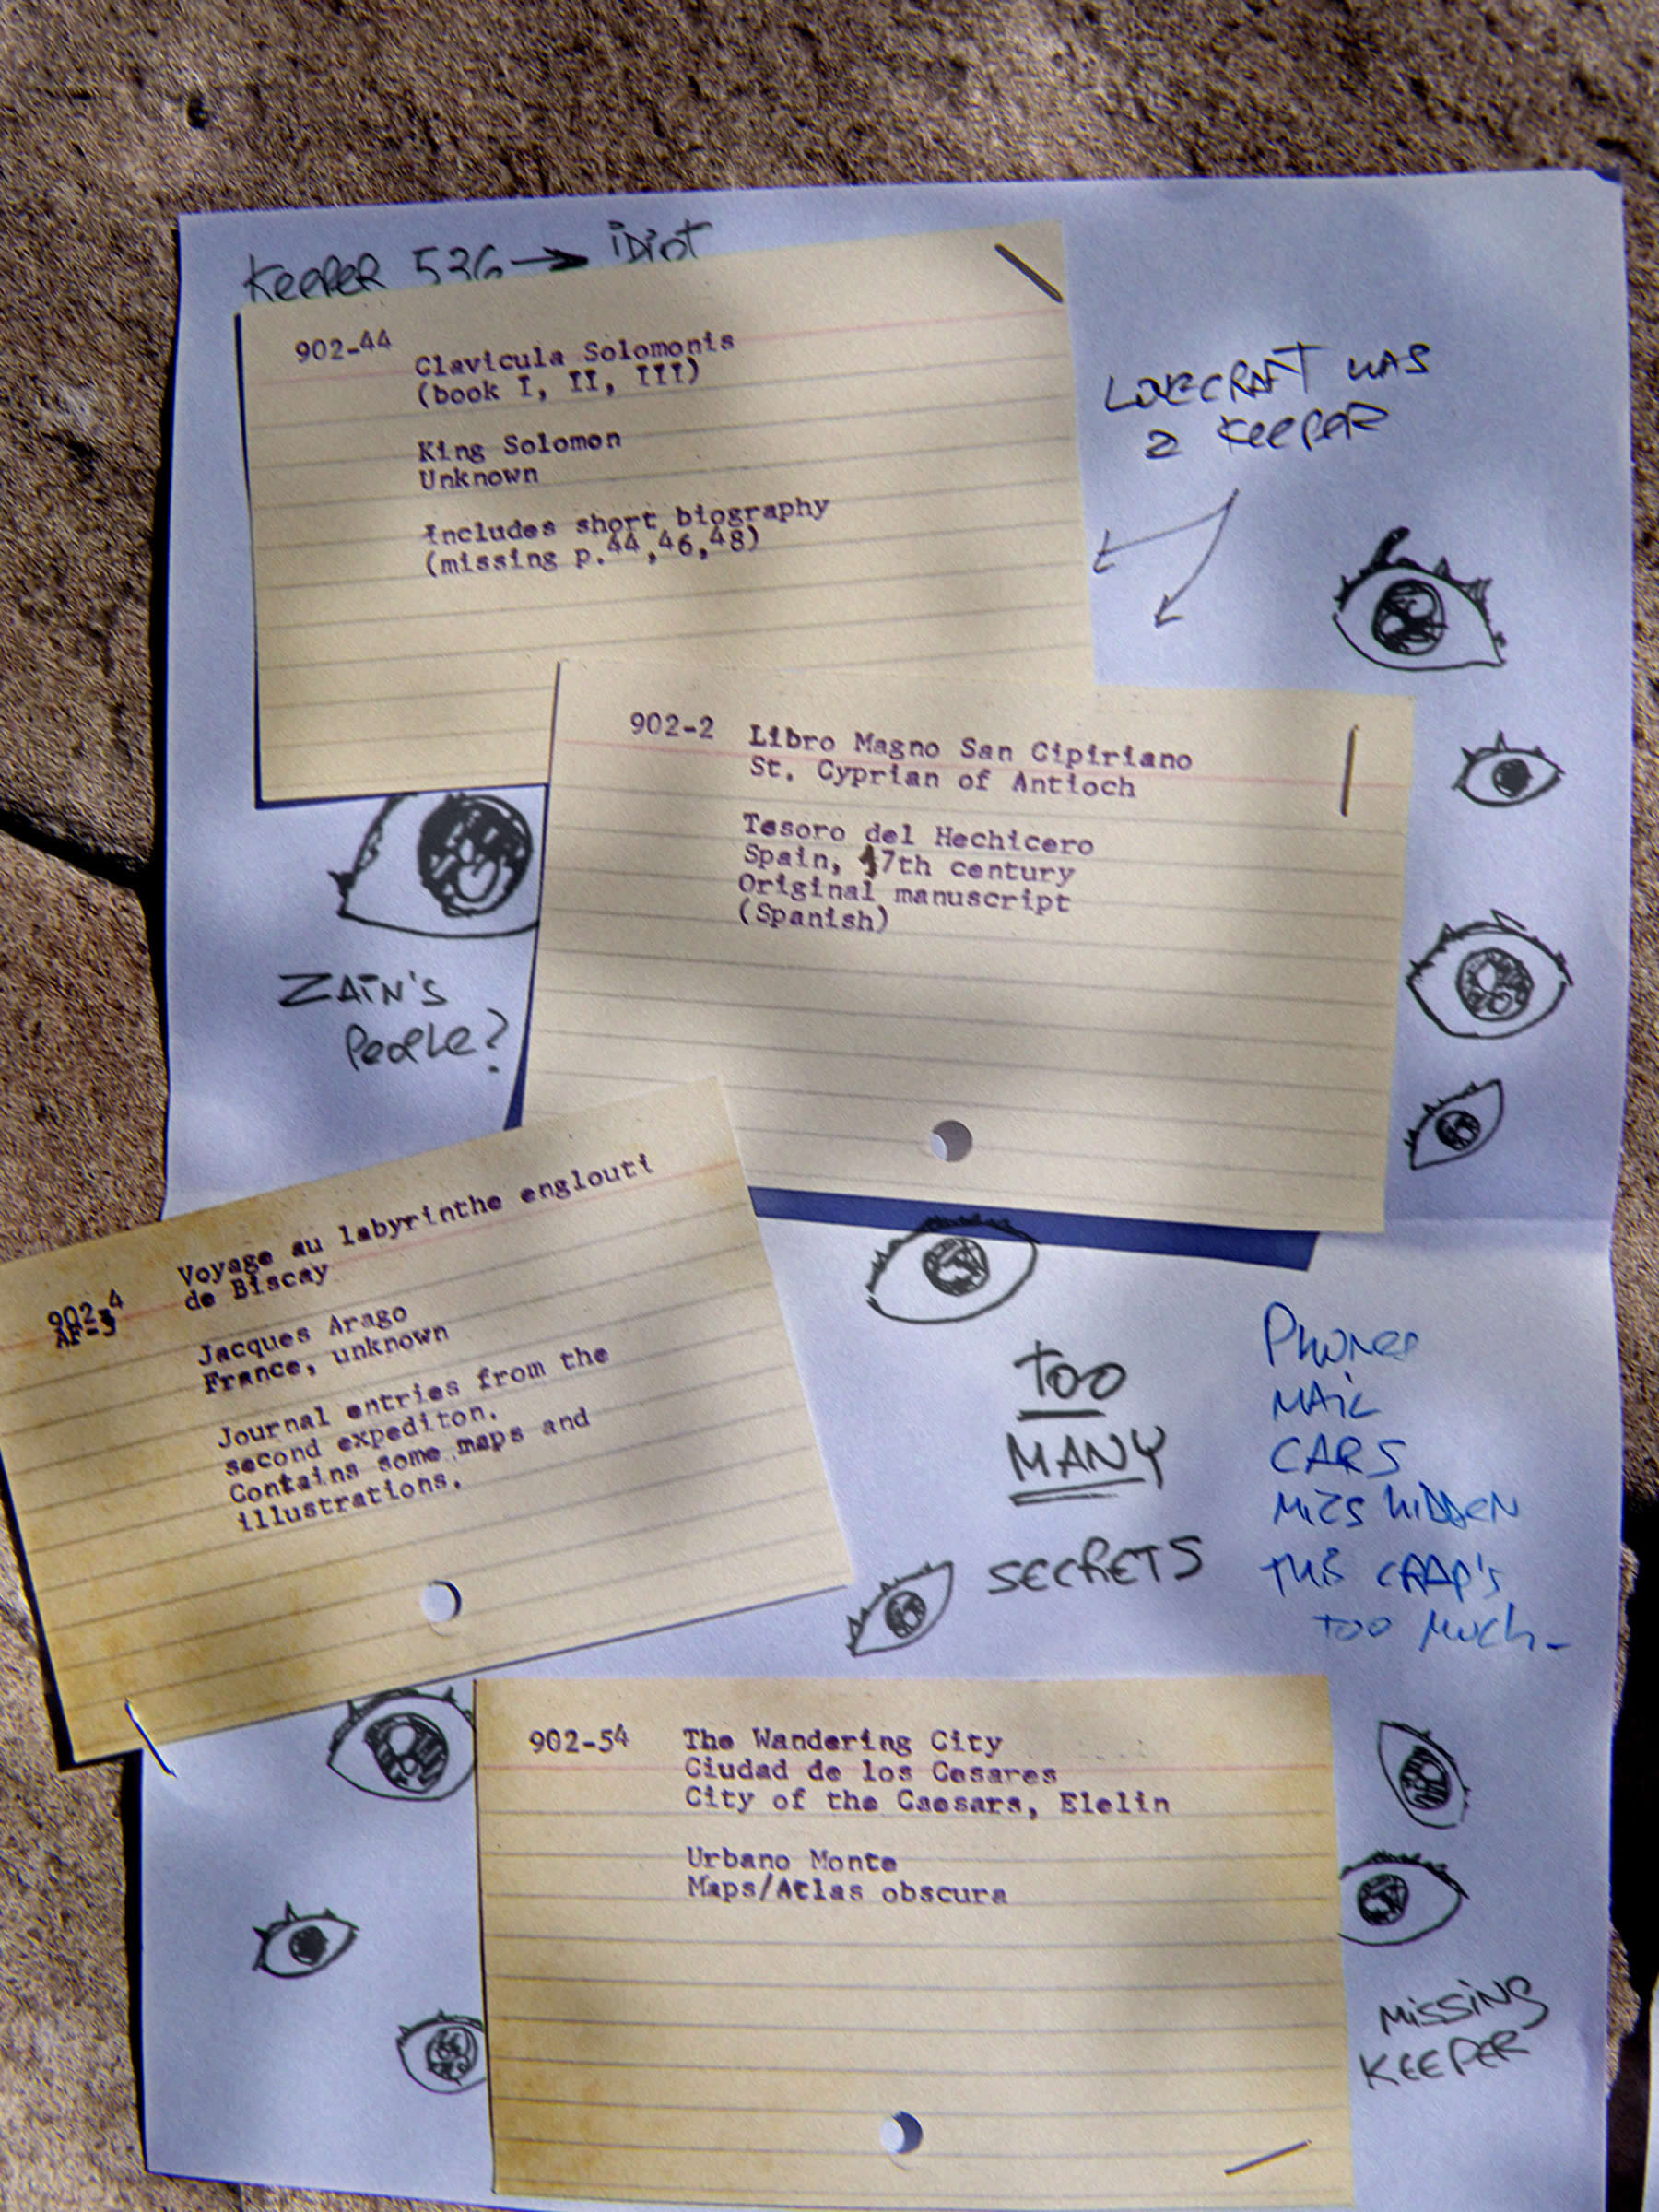 KEEPER 536 → iDiOT
902-44
Clavicula Solomonis
(book I, II, III)
King Solomon
Unknown
Includes short biography
(missing p.44,46,48)
LOVECRAFT WAS
a KEEPER
902-2
Libro Magno San Cipiriano
St. Cyprian of Antioch
Tesoro del Hechicero
Spain, 17th century
Original manuscript
(Spanish)
ZAiN'S
PeoPLe?
902-4
AF-3
Voyage au labyrinthe englouti
de Biscay
Jacques Arago
France, unknown
Journal entries from the
second expediton.
Contains some maps and
illustrations.
TOO
MANY
SECRETS
PHONES
MAiL
CARS
HiDDEN
THiS CRAP'S
TOO MUCH-
902-54
The Wandering City
Ciudad de los Cesares
City of the Caesars, Elelin
Urbano Monte
Maps/Atlas obscura
MiSSiNG
KEEPER